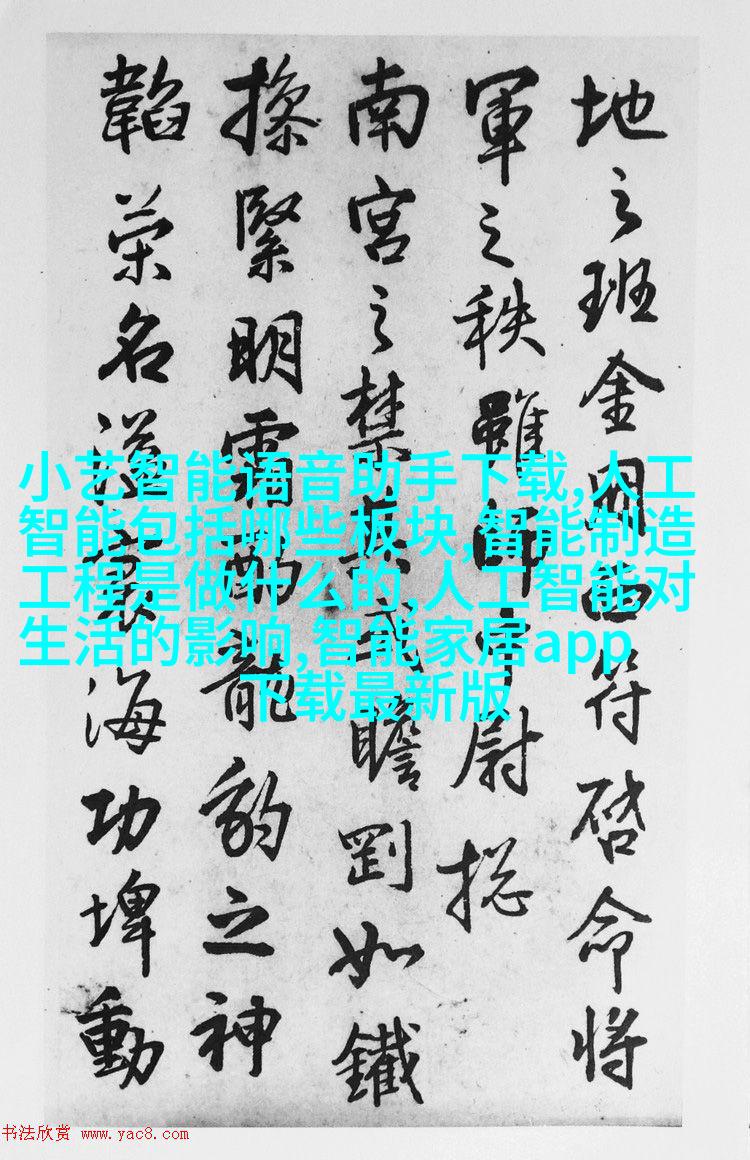 地之班金西符啓命将
軍之秩雖中尉揔
南宮之禁瞻如鐵
操緊明霜龍豹之神
韜榮名海功埤動
小艺智能语音助手下载,人工
智能包括哪些板块,智能制造
工程是做什么的,人工智能对
生活的影响,智能家居app
下载最新版
书法欣赏 www.yac8.com